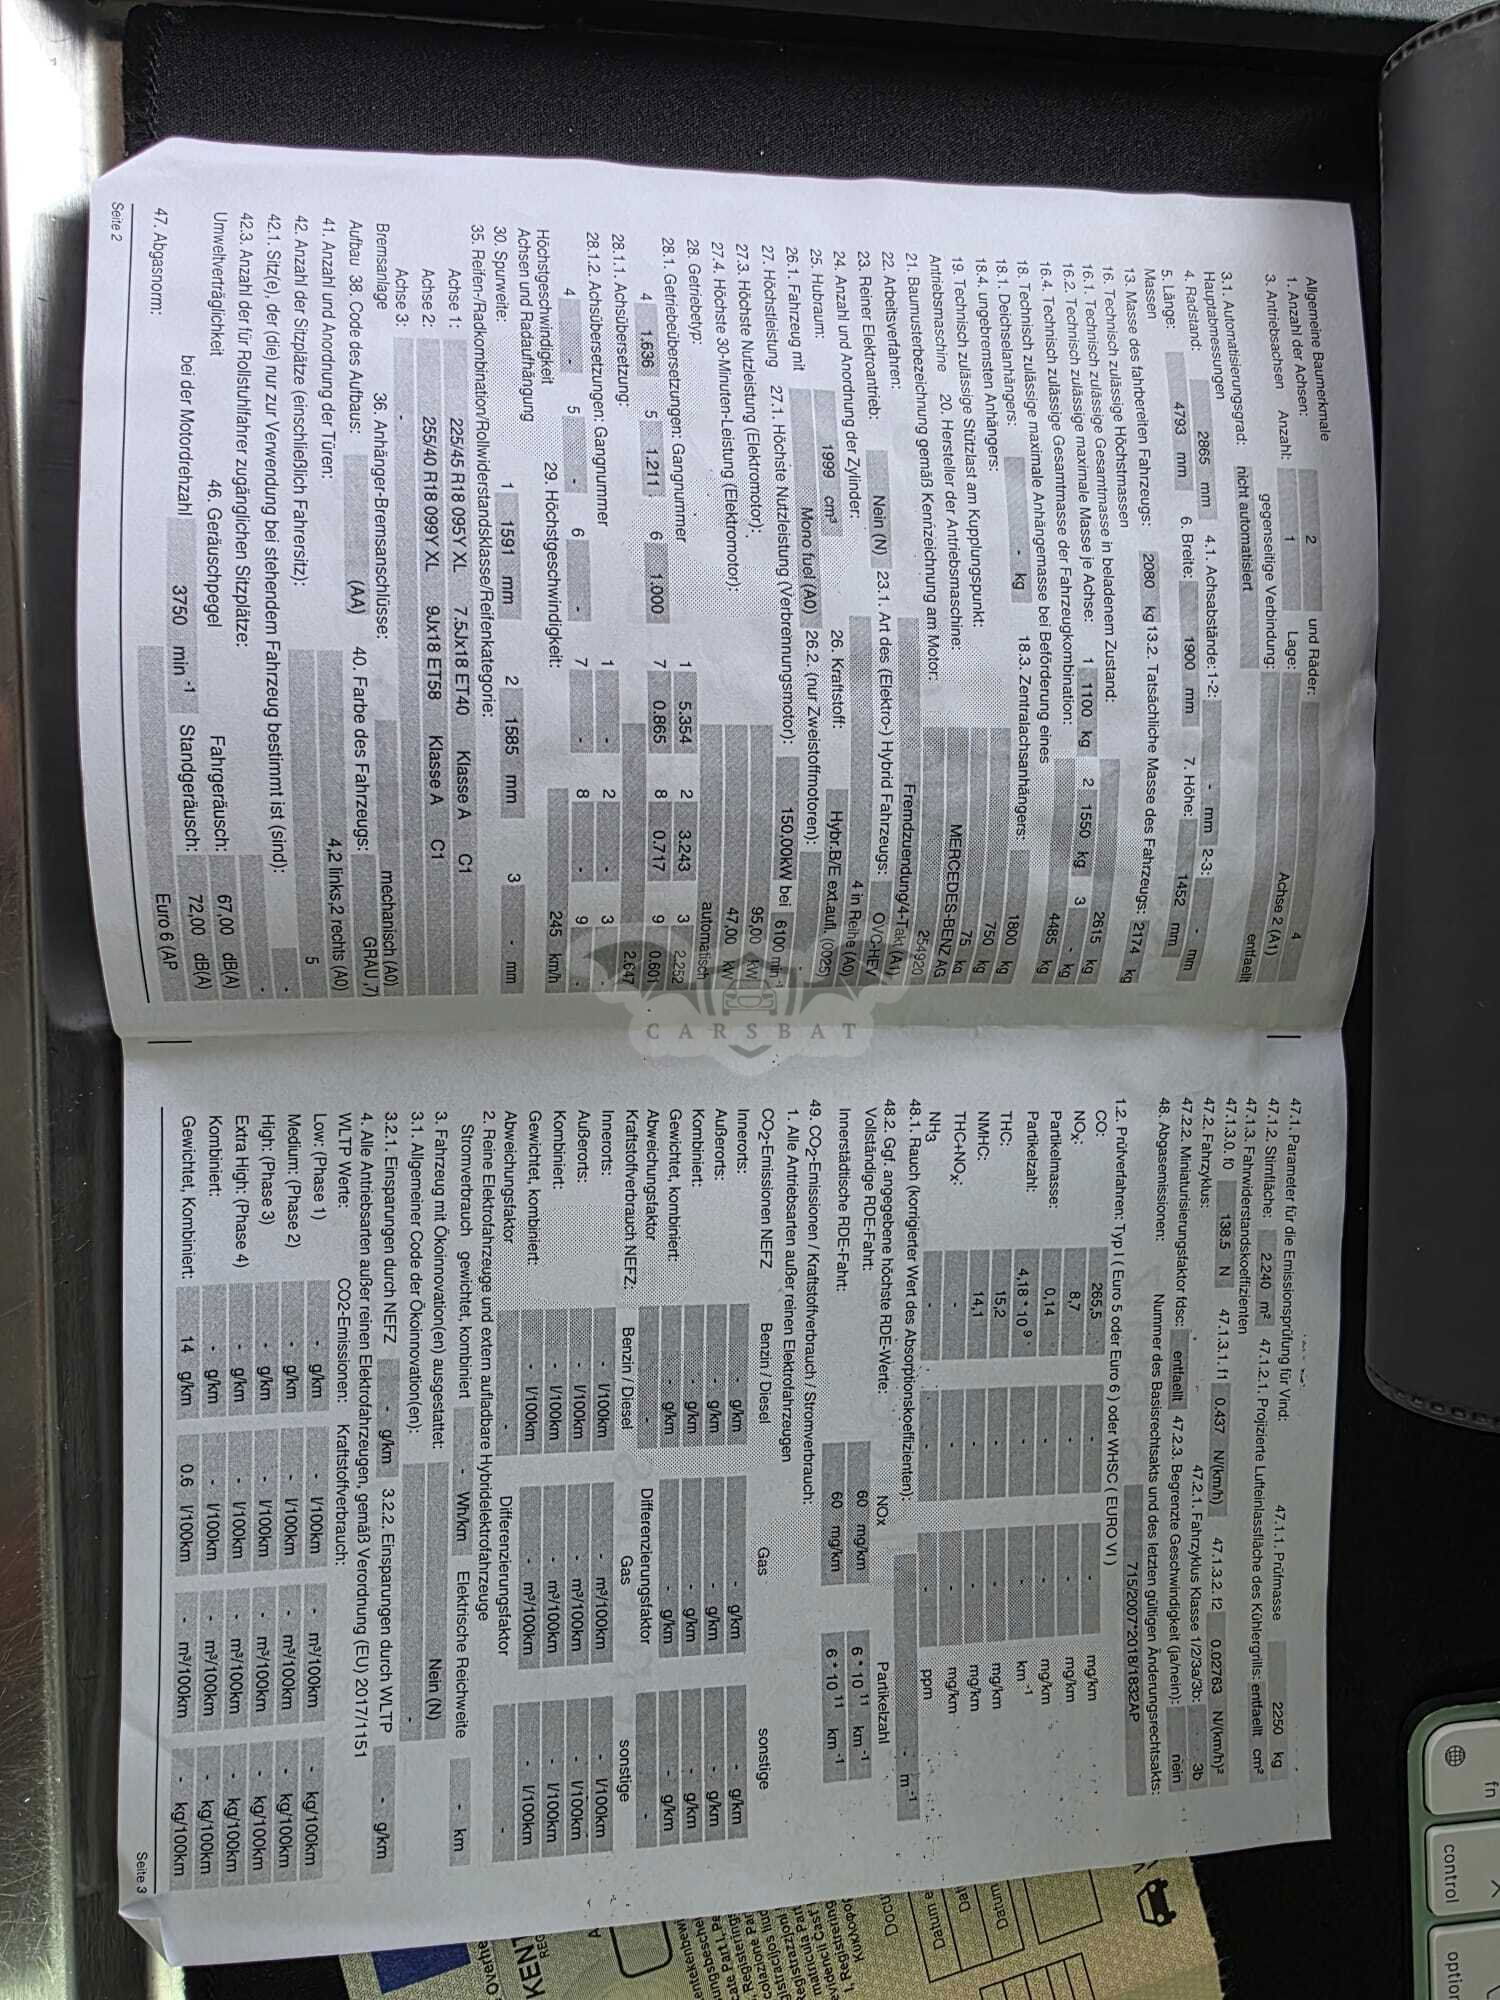 Allgemeine Baumerkmale
1. Anzahl der Achsen: 2 und Räder: 4
3. Antriebsachsen Anzahl: 1 Lage: Achse 2 (A1)
gegenseitige Verbindung: entfaellt
3.1. Automatisierungsgrad: nicht automatisiert
Hauptabmessungen
4. Radstand: 2865 mm 4.1. Achsabstände: 1-2: - mm 2-3: - mm
5. Länge: 4793 mm 6. Breite: 1900 mm 7. Höhe: 1452 mm
Massen
13. Masse des fahrbereiten Fahrzeugs: 2080 kg 13.2. Tatsächliche Masse des Fahrzeugs: 2174 kg
16. Technisch zulässige Höchstmassen
16.1. Technisch zulässige Gesamtmasse in beladenem Zustand: 2615 kg
16.2. Technisch zulässige maximale Masse je Achse: 1 1100 kg 2 1550 kg 3 - kg
16.4. Technisch zulässige Gesamtmasse der Fahrzeugkombination: 4485 kg
18. Technisch zulässige maximale Anhängemasse bei Beförderung eines
18.1. Deichselanhängers: - kg 18.3. Zentralachsanhängers: 1800 kg
18.4. ungebremsten Anhängers: 750 kg
19. Technisch zulässige Stützlast am Kupplungspunkt: 75 kg
Antriebsmaschine 20. Hersteller der Antriebsmaschine: MERCEDES-BENZ AG
21. Baumusterbezeichnung gemäß Kennzeichnung am Motor: 254920
22. Arbeitsverfahren: Fremdzuendung/4-Takt (A1)
23. Reiner Elektroantrieb: Nein (N) 23.1. Art des (Elektro-) Hybrid Fahrzeugs: OVC-HEV
24. Anzahl und Anordnung der Zylinder: 4 in Reihe (A0)
25. Hubraum: 1999 cm³ 26. Kraftstoff: Hybr.B/E ext.aufl. (0025)
26.1. Fahrzeug mit Mono fuel (A0) 26.2. (nur Zweistoffmotoren): -
27. Höchstleistung 27.1. Höchste Nutzleistung (Verbrennungsmotor): 150,00kW bei 6100 min-¹
27.3. Höchste Nutzleistung (Elektromotor): 95,00 kW
27.4. Höchste 30-Minuten-Leistung (Elektromotor): 47,00 kW
28. Getriebetyp: automatisch
28.1. Getriebeübersetzungen: Gangnummer 1 5.354 2 3.243 3 2.252
4 1.636 5 1.211 6 1.000 7 0.865 8 0.717 9 0.601
28.1.1. Achsübersetzung: 2.647
28.1.2. Achsübersetzungen: Gangnummer 1 - 2 - 3 -
4 - 5 - 6 - 7 - 8 - 9 -
Höchstgeschwindigkeit 29. Höchstgeschwindigkeit: 245 km/h
Achsen und Radaufhängung
30. Spurweite: 1 1591 mm 2 1585 mm 3 - mm
35. Reifen-/Radkombination/Rollwiderstandsklasse/Reifenkategorie:
Achse 1: 225/45 R18 095Y XL 7.5Jx18 ET40 Klasse A C1
Achse 2: 255/40 R18 099Y XL 9Jx18 ET58 Klasse A C1
Achse 3: -
Bremsanlage 36. Anhänger-Bremsanschlüsse: mechanisch (A0)
Aufbau 38. Code des Aufbaus: (AA) 40. Farbe des Fahrzeugs: GRAU ,7)
41. Anzahl und Anordnung der Türen: 4,2 links,2 rechts (A0)
42. Anzahl der Sitzplätze (einschließlich Fahrersitz): 5
42.1. Sitz(e), der (die) nur zur Verwendung bei stehendem Fahrzeug bestimmt ist (sind): -
42.3. Anzahl der für Rollstuhlfahrer zugänglichen Sitzplätze: -
Umweltverträglichkeit 46. Geräuschpegel Fahrgeräusch: 67,00 dB(A)
bei der Motordrehzahl 3750 min -1 Standgeräusch: 72,00 dB(A)
47. Abgasnorm: Euro 6 (AP
Seite 2
CARSBAT
47.1. Parameter für die Emissionsprüfung für Vind: 47.1.1. Prüfmasse 2250 kg
47.1.2. Stirnfläche: 2.240 m² 47.1.2.1. Projizierte Lufteinlassfläche des Kühlergrills: entfaellt cm²
47.1.3. Fahrwiderstandskoeffizienten
47.1.3.0. f0 138.5 N 47.1.3.1. f1 0.437 N/(km/h) 47.1.3.2. f2 0.02763 N/(km/h)²
47.2. Fahrzyklus: 47.2.1. Fahrzyklus Klasse 1/2/3a/3b: 3b
47.2.2. Miniaturisierungsfaktor fdsc: entfaellt 47.2.3. Begrenzte Geschwindigkeit (ja/nein): nein
48. Abgasemissionen: Nummer des Basisrechtsakts und des letzten gültigen Änderungsrechtsakts:
715/2007*2018/1832AP
1.2. Prüfverfahren: Typ I ( Euro 5 oder Euro 6 ) oder WHSC ( EURO VI )
CO: 265,5 - - mg/km
NOx: 8,7 - - mg/km
Partikelmasse: 0,14 - - mg/km
Partikelzahl: 4,18 * 10 9 - - km -1
THC: 15,2 - - mg/km
NMHC: 14,1 - - mg/km
THC+NOx: - - - mg/km
NH3 - - - ppm
48.1. Rauch (korrigierter Wert des Absorptionskoeffizienten): - m -1
48.2. Ggf. angegebene höchste RDE-Werte: NOx Partikelzahl
Vollständige RDE-Fahrt: 60 mg/km 6 * 10 11 km -1
Innerstädtische RDE-Fahrt: 60 mg/km 6 * 10 11 km -1
49. CO2-Emissionen / Kraftstoffverbrauch / Stromverbrauch:
1. Alle Antriebsarten außer reinen Elektrofahrzeugen
CO2-Emissionen NEFZ Benzin / Diesel Gas sonstige
Innerorts: - g/km - g/km - g/km
Außerorts: - g/km - g/km - g/km
Kombiniert: - g/km - g/km - g/km
Gewichtet, kombiniert: - g/km - g/km - g/km
Abweichungsfaktor - Differenzierungsfaktor -
Kraftstoffverbrauch NEFZ: Benzin / Diesel Gas sonstige
Innerorts: - l/100km - m³/100km - l/100km
Außerorts: - l/100km - m³/100km - l/100km
Kombiniert: - l/100km - m³/100km - l/100km
Gewichtet, kombiniert: - l/100km - m³/100km - l/100km
Abweichungsfaktor - Differenzierungsfaktor -
2. Reine Elektrofahrzeuge und extern aufladbare Hybridelektrofahrzeuge
Stromverbrauch gewichtet, kombiniert - Wh/km Elektrische Reichweite - km
3. Fahrzeug mit Ökoinnovation(en) ausgestattet: Nein (N)
3.1. Allgemeiner Code der Ökoinnovation(en): -
3.2.1. Einsparungen durch NEFZ - g/km 3.2.2. Einsparungen durch WLTP - g/km
4. Alle Antriebsarten außer reinen Elektrofahrzeugen, gemäß Verordnung (EU) 2017/1151
WLTP Werte: CO2-Emissionen: Kraftstoffverbrauch:
Low: (Phase 1) - g/km - l/100km - m³/100km - kg/100km
Medium: (Phase 2) - g/km - l/100km - m³/100km - kg/100km
High: (Phase 3) - g/km - l/100km - m³/100km - kg/100km
Extra High: (Phase 4) - g/km - l/100km - m³/100km - kg/100km
Kombiniert: - g/km - l/100km - m³/100km - kg/100km
Gewichtet, Kombiniert: 14 g/km 0.6 l/100km - m³/100km - kg/100km
Seite 3
fn
control
option